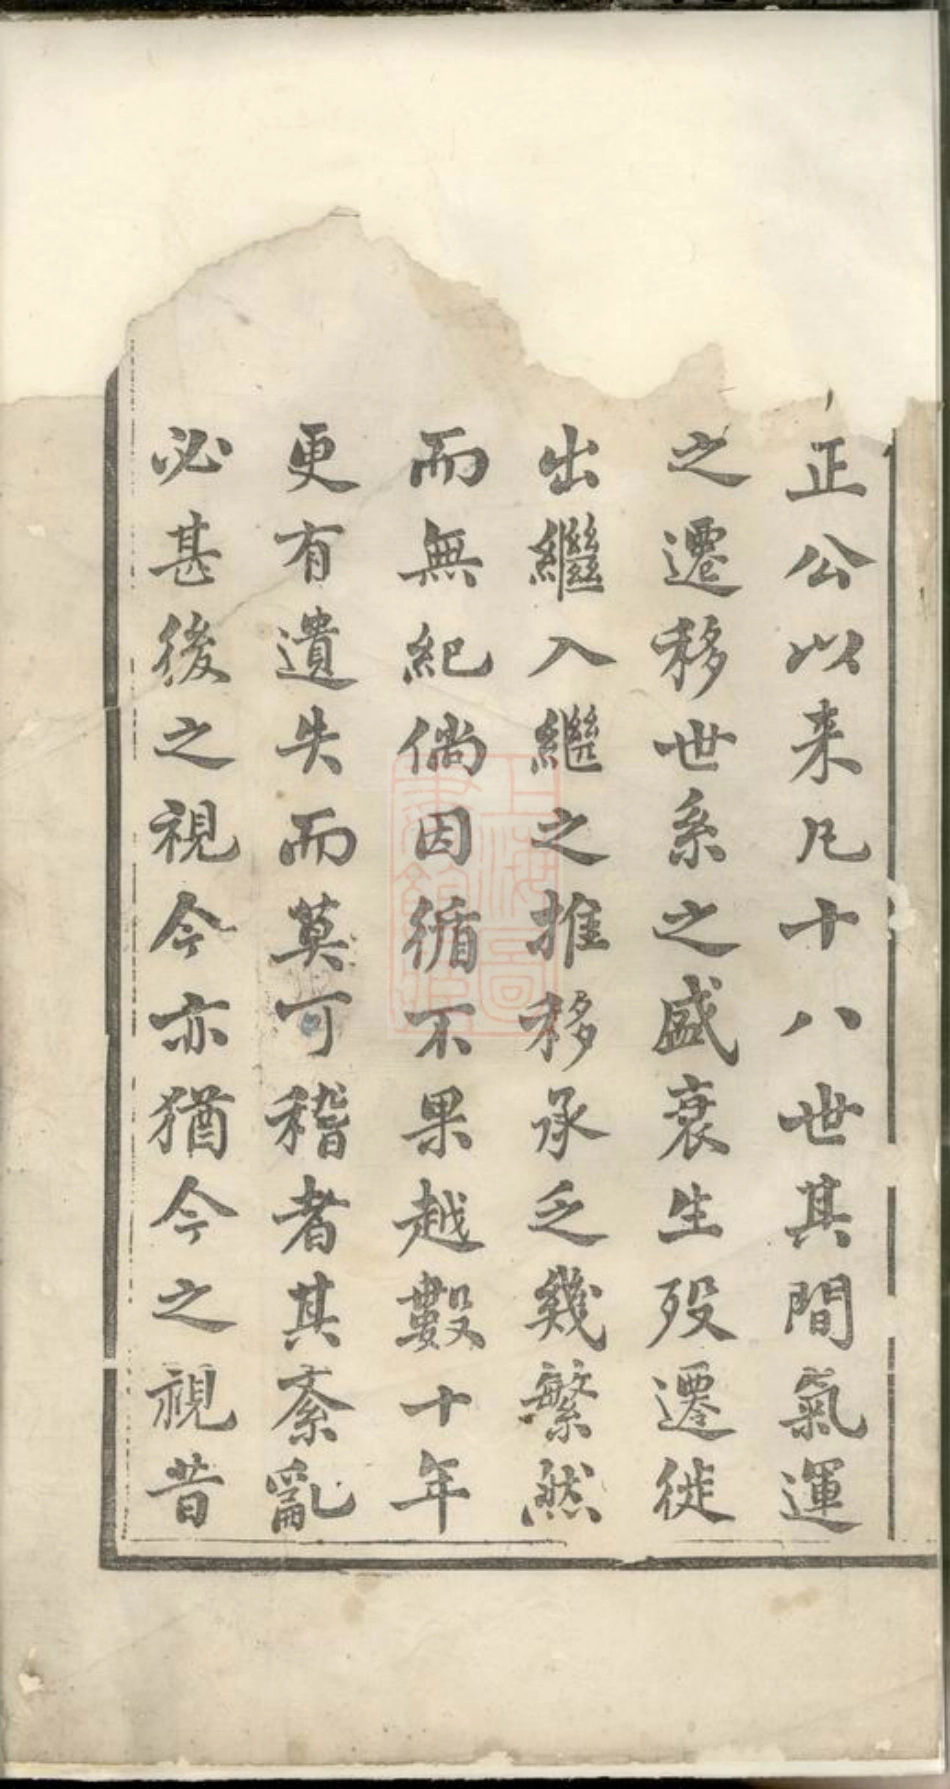 正公以来凡十八世其間氣運
之遷移世系之盛衰生歿遷徙
出繼入繼之推移承乏幾繁然
而無紀倘因循不果越數十年
更有遺失而莫可稽者其紊亂
必甚後之視今亦猶今之視昔
上海圖
書館藏